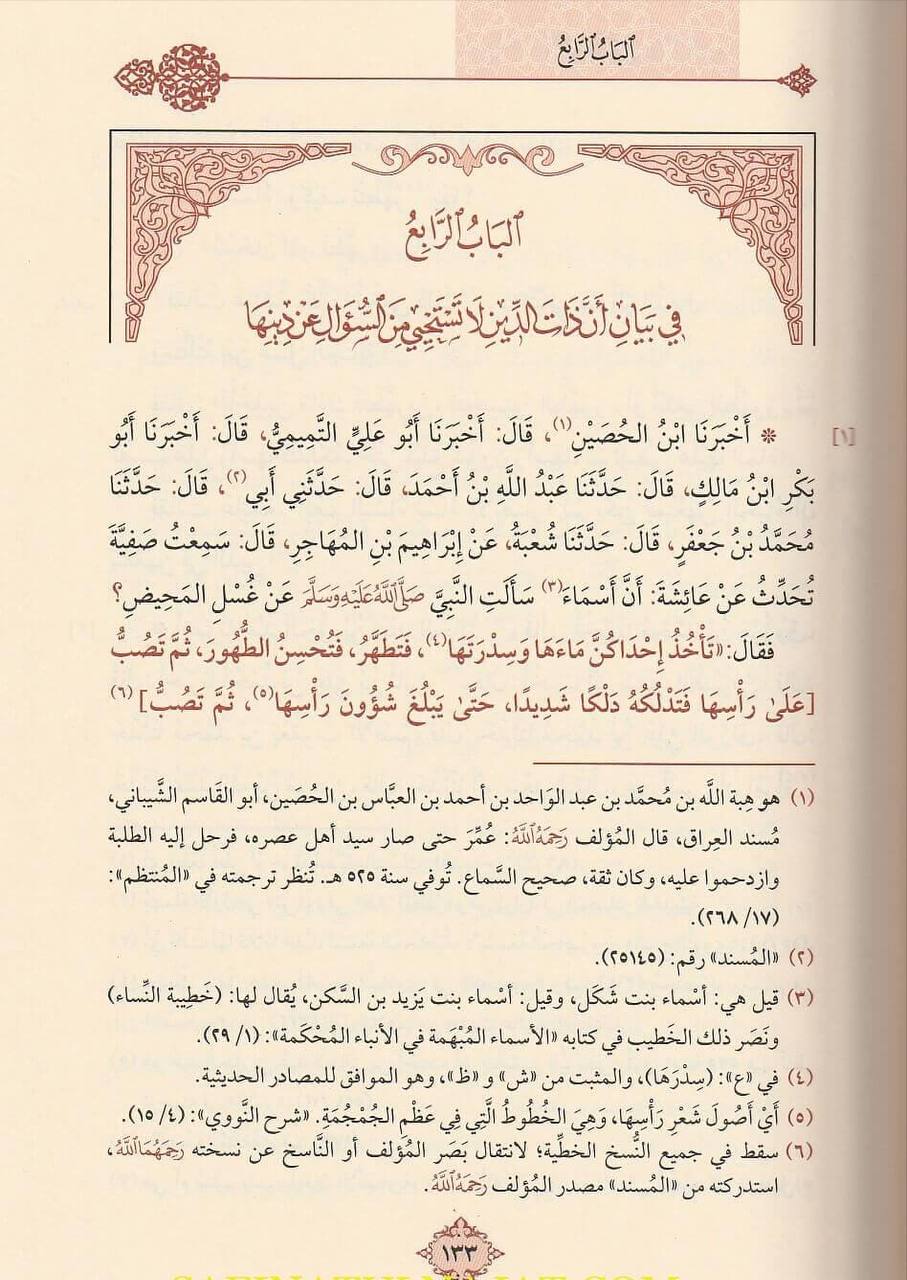 البَابُ الرَّابِعُ
البَابُ الرَّابِعُ
فِي بَيَانِ أَنَّ ذَاتَ الدِّينِ لَا تَسْتَحْيِي مِنَ السُّؤَالِ عَنْ دِينِهَا
[١] * أَخْبَرَنَا ابْنُ الحُصَيْنِ(١)، قَالَ: أَخْبَرَنَا أَبُو عَلِيٍّ التَّمِيمِيُّ، قَالَ: أَخْبَرَنَا أَبُو
بَكْرِ ابْنُ مَالِكٍ، قَالَ: حَدَّثَنَا عَبْدُ اللَّهِ بْنُ أَحْمَدَ، قَالَ: حَدَّثَنِي أَبِي(٢)، قَالَ: حَدَّثَنَا
مُحَمَّدُ بْنُ جَعْفَرٍ، قَالَ: حَدَّثَنَا شُعْبَةُ، عَنْ إِبْرَاهِيمَ بْنِ المُهَاجِرِ، قَالَ: سَمِعْتُ صَفِيَّةَ
تُحَدِّثُ عَنْ عَائِشَةَ: أَنَّ أَسْمَاءَ(٣) سَأَلَتِ النَّبِيَّ صَلَّى اللَّهُ عَلَيْهِ وَسَلَّمَ عَنْ غُسْلِ المَحِيضِ؟
فَقَالَ: «تَأْخُذُ إِحْدَاكُنَّ مَاءَهَا وَسِدْرَتَهَا(٤)، فَتَطَهَّرُ، فَتُحْسِنُ الطُّهُورَ، ثُمَّ تَصُبُّ
[عَلَىٰ رَأْسِهَا فَتَدْلُكُهُ دَلْكًا شَدِيدًا، حَتَّىٰ يَبْلُغَ شُؤُونَ رَأْسِهَا(٥)، ثُمَّ تَصُبُّ](٦)
(١) هو هِبة اللَّه بن مُحمَّد بن عبد الوَاحد بن أحمد بن العبَّاس بن الحُصَين، أبو القاسم الشَّيباني،
مُسند العِراق، قال المُؤلف رَحِمَهُ اللَّهُ: عُمِّرَ حتى صار سيد أهل عصره، فرحل إليه الطلبة
وازدحموا عليه، وكان ثقة، صحيح السَّماع. تُوفي سنة ٥٢٥ هـ. تُنظر ترجمته في «المُنتظم»:
(١٧/ ٢٦٨).
(٢) «المُسند» رقم: (٢٥١٤٥).
(٣) قيل هي: أسْماء بنت شَكَل، وقيل: أسْماء بنت يَزيد بن السَّكن، يُقال لها: (خَطِيبة النِّساء)
ونَصَر ذلك الخَطيب في كتابه «الأسماء المُبْهَمة في الأنباء المُحْكَمة»: (١/ ٢٩).
(٤) في «ع»: (سِدْرَهَا)، والمثبت من «ش» و «ظ»، وهو الموافق للمصادر الحديثية.
(٥) أَيْ أُصُولَ شَعْرِ رَأْسِهَا، وَهِيَ الخُطُوطُ الَّتِي فِي عَظْمِ الجُمْجُمَةِ. «شرح النَّووي»: (٤/ ١٥).
(٦) سقط في جميع النُّسخ الخطِّية؛ لانتقال بَصَر المُؤلف أو النَّاسخ عن نسخته رَحِمَهُمَا اللَّهُ،
استدركته من «المُسند» مصدر المُؤلف رَحِمَهُ اللَّهُ.
١٣٣